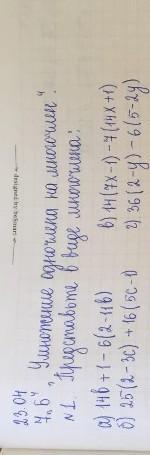 23.04
7„Б"
„Умножение одночлена на многочлен".
№1. Представьте в виде многочлена:
а) 14b+1-6(2-11b) в) 14(7x-1)-7(14x+1)
б) 25(2-3c)+16(5c-1) г) 36(2-y)-6(5-2y)